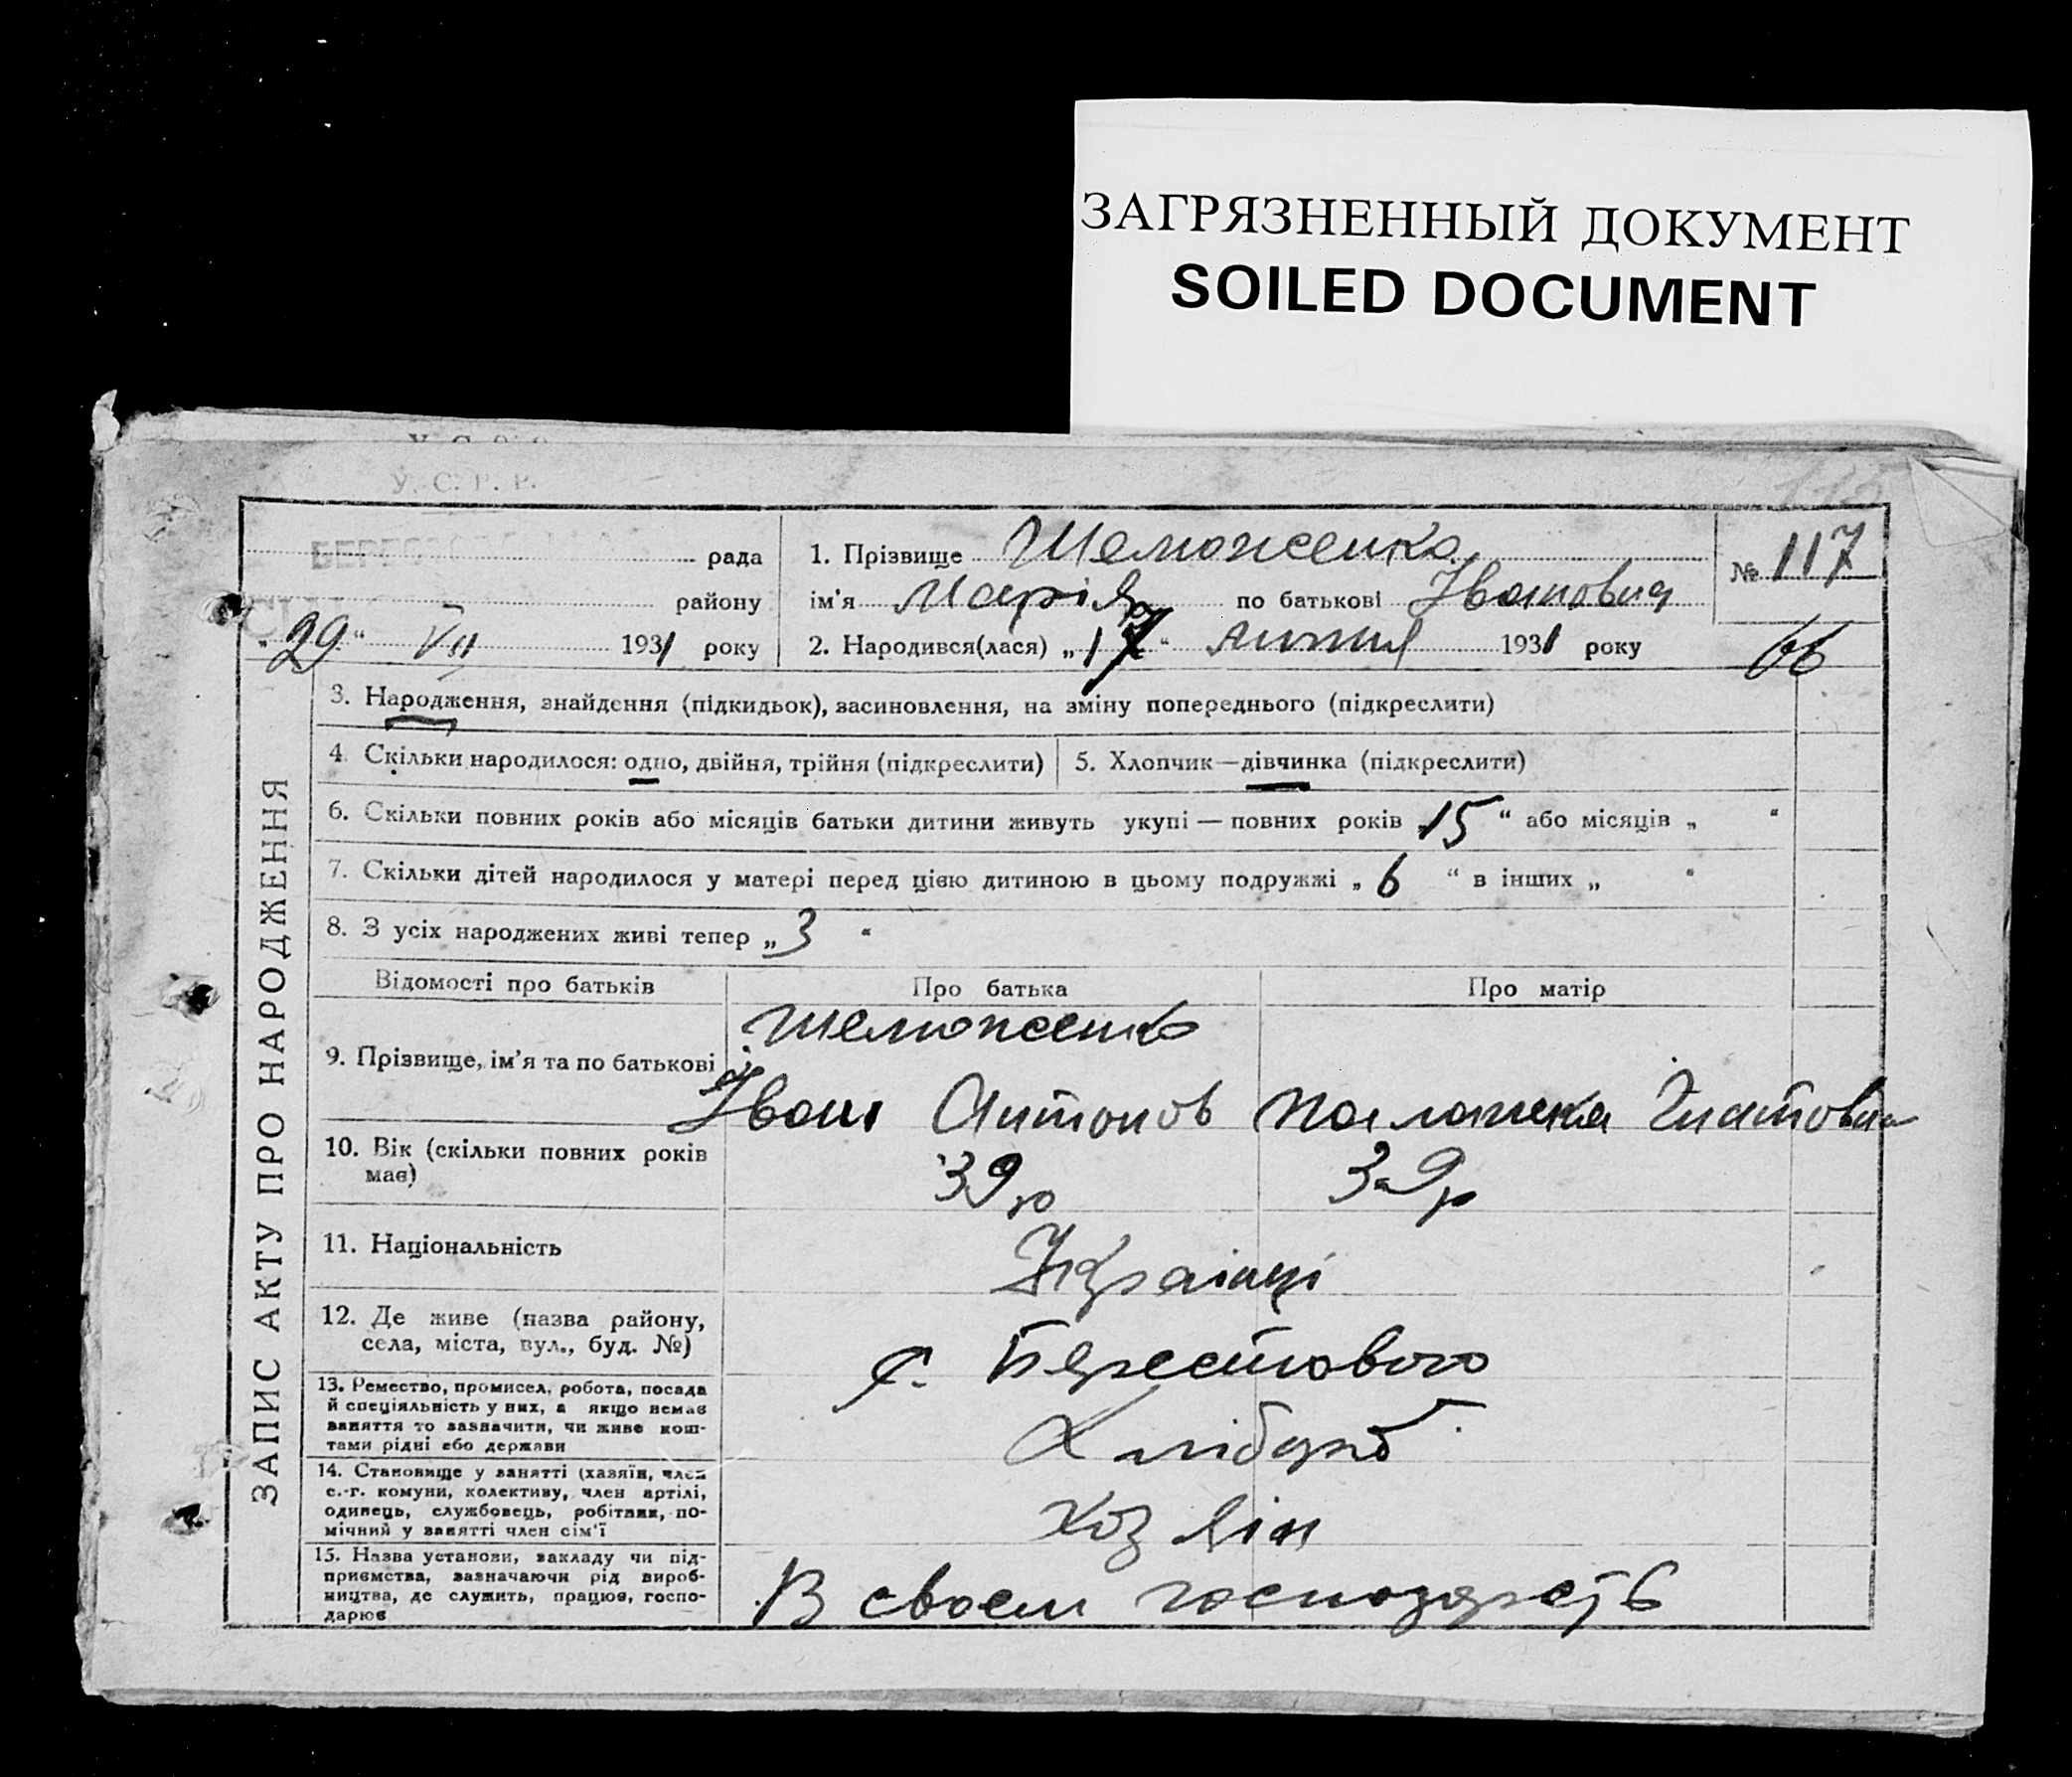 ЗАГРЯЗНЕННЫЙ ДОКУМЕНТ
SOILED DOCUMENT
У. С. Р. Р.
рада
району
„29“ VII 1931 року
1. Прізвище Шеможенко
ім'я Марія по батькові Івановна
2. Народився(лася) „17“ липня 1931 року
№ 117
66
ЗАПИС АКТУ ПРО НАРОДЖЕННЯ
3. Народження, знайдення (підкидьок), засиновлення, на зміну попереднього (підкреслити)
4. Скільки народилося: одно, двійня, трійня (підкреслити)
5. Хлопчик—дівчинка (підкреслити)
6. Скільки повних років або місяців батьки дитини живуть укупі — повних років „15“ або місяців „ “
7. Скільки дітей народилося у матері перед цією дитиною в цьому подружжі „6“ в інших „ “
8. З усіх народжених живі тепер „3“
Відомості про батьків Про батька Про матір
9. Прізвище, ім'я та по батькові
Шеможенко
Іван Антонов Палажка Гнатовна
10. Вік (скільки повних років має)
39 р 39 р
11. Національність
Українці
12. Де живе (назва району,
села, міста, вул., буд. №)
с. Берестового
13. Ремество, промисел, робота, посада
й спеціяльність у них, а якщо немає
заняття то зазначити, чи живе кош-
тами рідні або держави
Хлібороб
14. Становище у занятті (хазяїн, член
с.-г. комуни, колективу, член артілі,
одинець, службовець, робітник, по-
мічний у занятті член сім'ї
Хозяін
15. Назва установи, закладу чи під-
приємства, зазначаючи рід вироб-
ництва, де служить, працює, госпо-
дарює
В своем господарстві